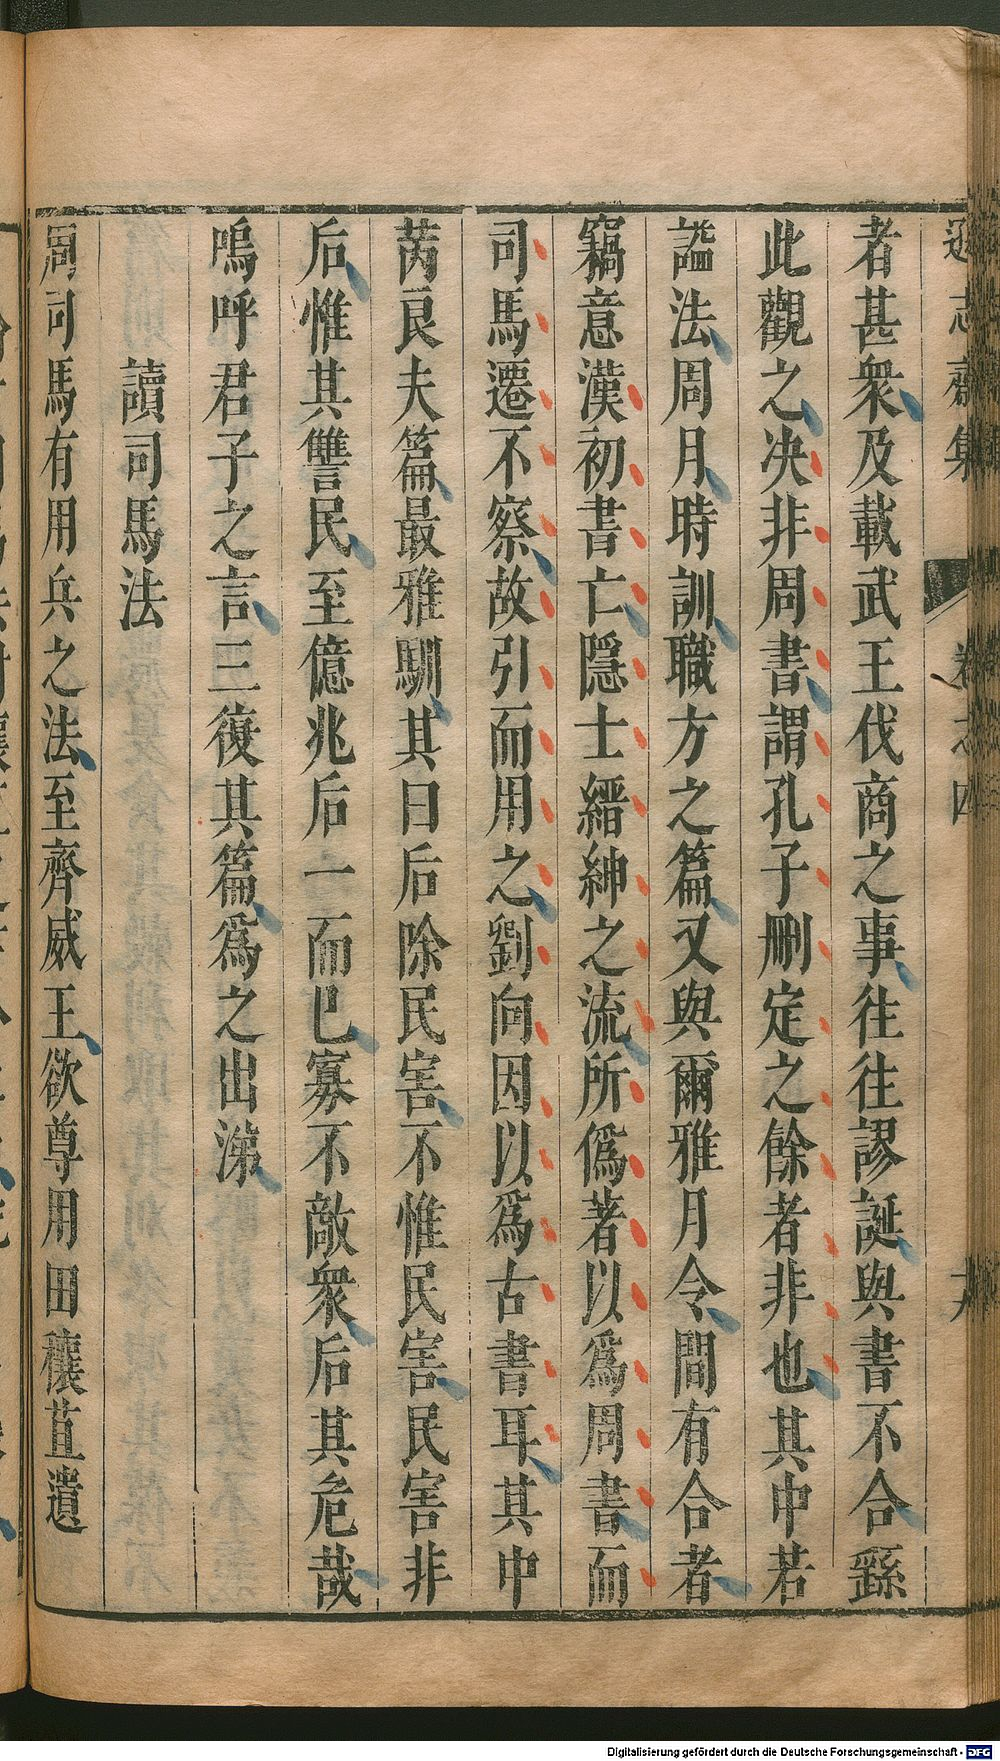 遜志齋集 卷之四
者甚衆及載武王伐商之事往往謬誕與書不合繇
此觀之决非周書謂孔子刪定之餘者非也其中若
謚法周月時訓職方之篇又與爾雅月令間有合者
竊意漢初書亡隱士縉紳之流所僞著以爲周書而
司馬遷不察故引而用之劉向因以爲古書耳其中
芮良夫篇最雅馴其曰后除民害不惟民害民害非
后惟其讐民至億兆后一而已寡不敵衆后其危哉
嗚呼君子之言三復其篇爲之出涕
讀司馬法
周司馬有用兵之法至齊威王欲尊用田穰苴遺
Digitalisierung gefördert durch die Deutsche Forschungsgemeinschaft - DFG